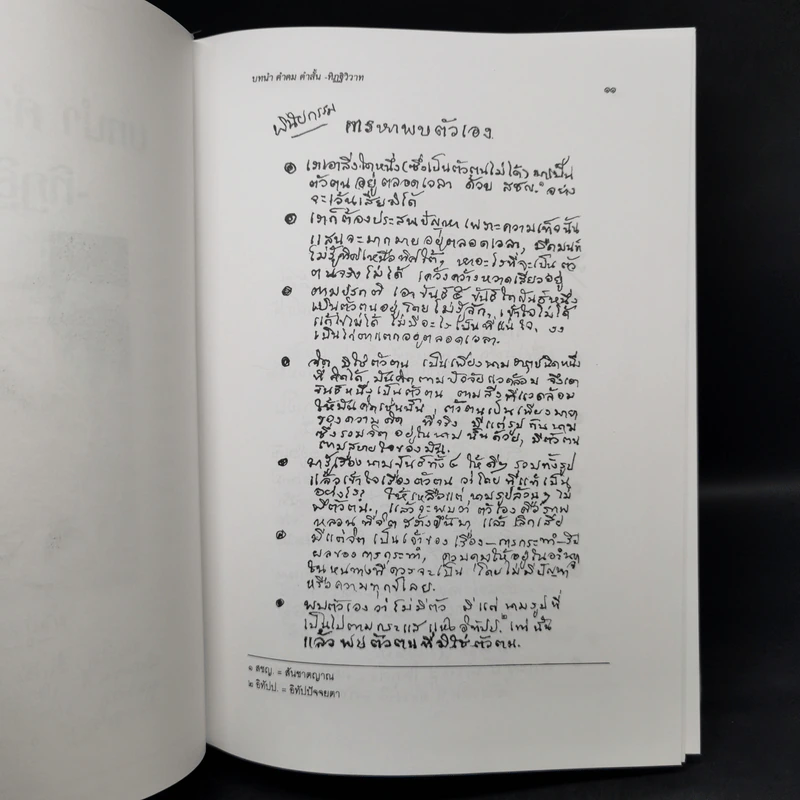 บทนำ คำคม คำสั้น -ทิฏฐิวิวาท
๑๑
พินัยกรรม การหาพบตัวเอง
เกเอาสิ่งใดหนึ่ง (ซึ่งเป็นตัวตนไม่ได้) มาเป็น
ตัวตน อยู่ตลอดเวลา ด้วย สชญ.๑ อย่าง
จะเว้นเสียมิได้
เขาก็ต้องประสพปัญหา เพราะความเท็จนั้น
แสนจะมากมาย อยู่ตลอดเวลา, มืดมนท์
ไม่รู้ทิศเหนือทิศใต้, หาอะไรที่จะเป็น ตัว
ตนจริง ไม่ได้ คว้างคว้างหวาดเสียวอยู่
ตามปรกติ เอาขันธ์ ๕ ขันธ์ใดขันธ์หนึ่ง
เป็นตัวตนอยู่ โดยไม่รู้สึก, เข้าใจไม่ได้
แก้ไขไม่ได้ ไม่มีอะไรเป็นที่แน่ใจ, งง
เป็นไก่ตาแตกอยู่ตลอดเวลา.
จิต มิใช่ตัวตน เป็นเพียงนามธาตุชนิดหนึ่ง
ที่คิดได้, มันคิดตามปัจจัยแวดล้อม จึงเอา
ขันธ์หนึ่งเป็นตัวตน ตามสิ่งที่แวดล้อม
ให้มันคิดเช่นนั้น, ตัวตนเป็นเพียงมายา
ของความคิด ที่จริง มีแต่รูปกับนาม
ซึ่งรวมจิต อยู่ในนามนั้นด้วย, มีตัวตน
ตามสบายใจของมัน.
มารู้เรื่องนามขันธ์ทั้ง ๔ ให้ดีๆ รวมทั้งรูป
แล้วเข้าใจเรื่องตัวตน ว่าโดยที่แท้เป็น
อย่างไร? ให้เหลือแต่ นามรูปล้วนๆ ไม่
มีตัวตน, แล้วจะพบว่า ตัวเองคือภาพ
หลอนที่จิตสร้างขึ้นมา แล้วเลิกเสีย
มีแต่จิต เป็นเจ้าของเรื่อง — การกระทำ — รับ
ผลของการกระทำ, ควบคุมให้อยู่ใน
ในหนทางที่ควรจะเป็น โดยไม่มีปัญหา
หรือความทุกข์เลย.
พบตัวเองว่าไม่มีตัว มีแต่นามรูปที่
เป็นไปตามกระแสแห่งอิทัปป.๒ เท่านั้น
แล้วพบตัวตนที่มิใช่ตัวตน.
๑ สชญ. = สัญชาตญาณ
๒ อิทัปป. = อิทัปปัจจยตา